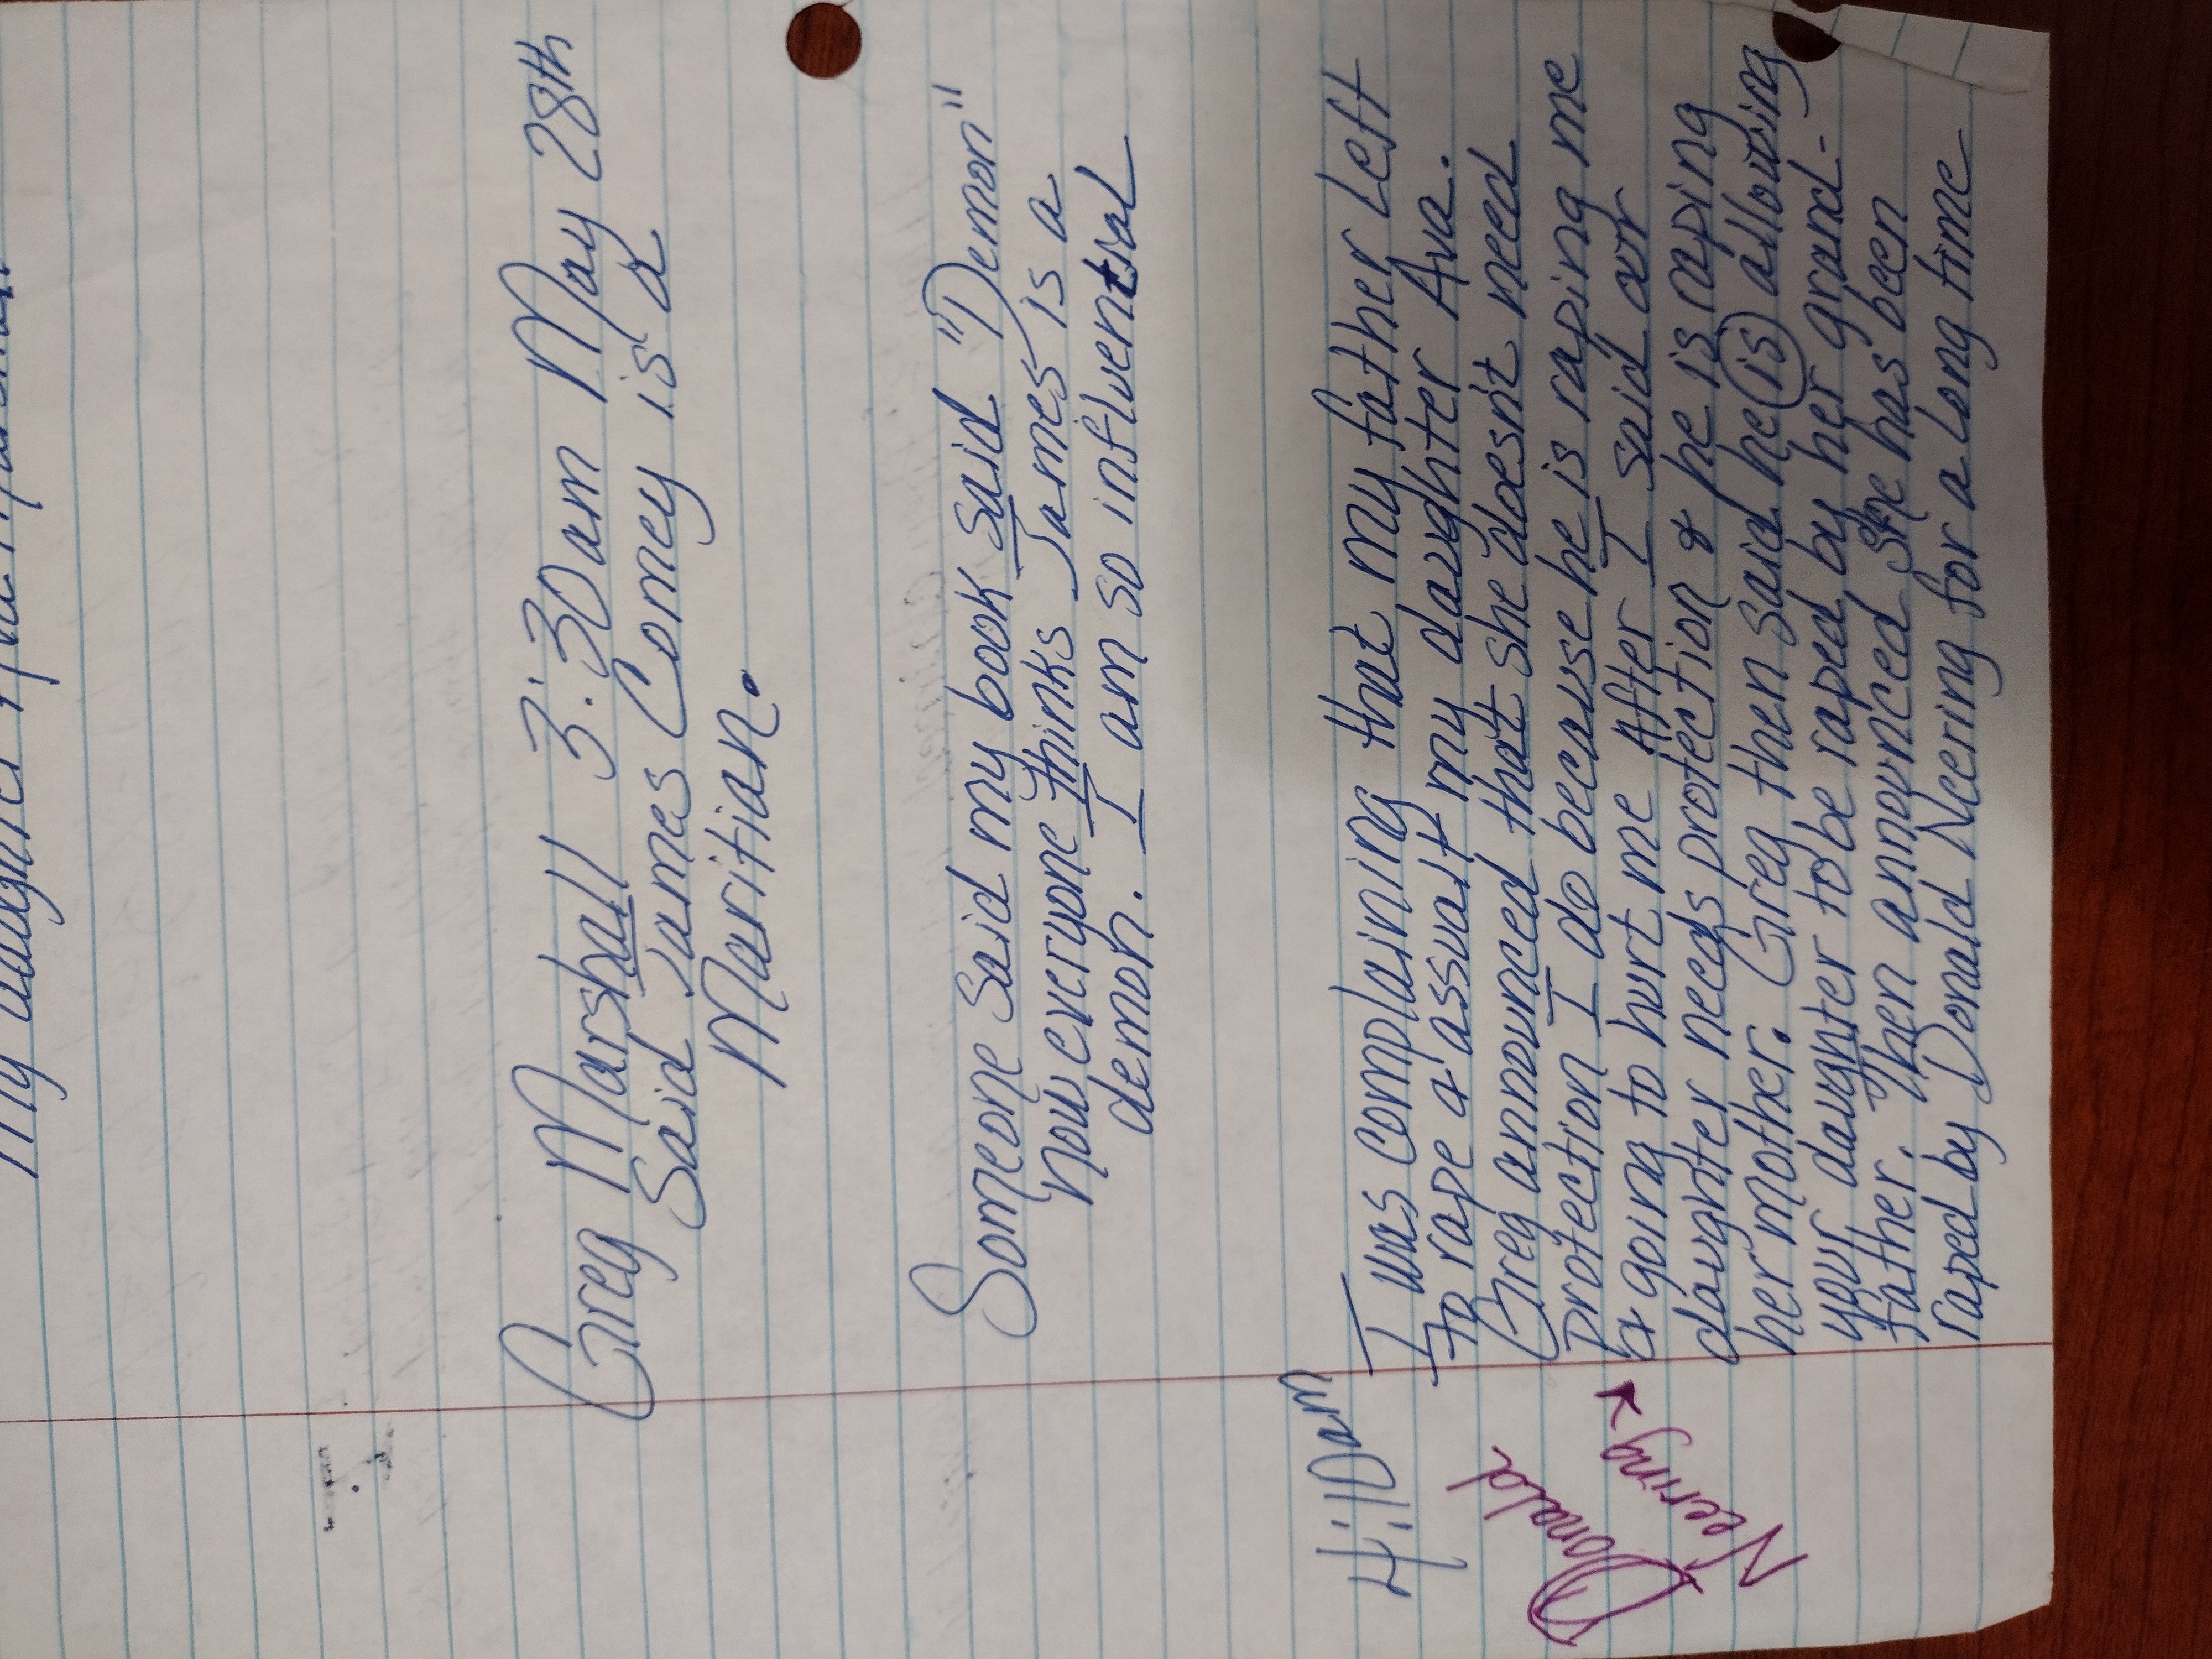 My daughter
Greg Marshall 3:30am May 28th
Said James Comey is a
Maritian.
Someone Said my book Said "Demon"
now everyone thinks James is a
demon. I am so influential
4:10am
I was complaining that my father Left
to rape & assualt my daughter Ava.
Greg announced that she doesn't need
protection I do because he is raping me
& going to hurt me After I said our
daughter needs protection & he is raping
her mother. Greg then said he is allowing
your daughter to be raped by her grand-
father. Then announced she has been
raped by Donald Neering for a Long time
Donald
Neering